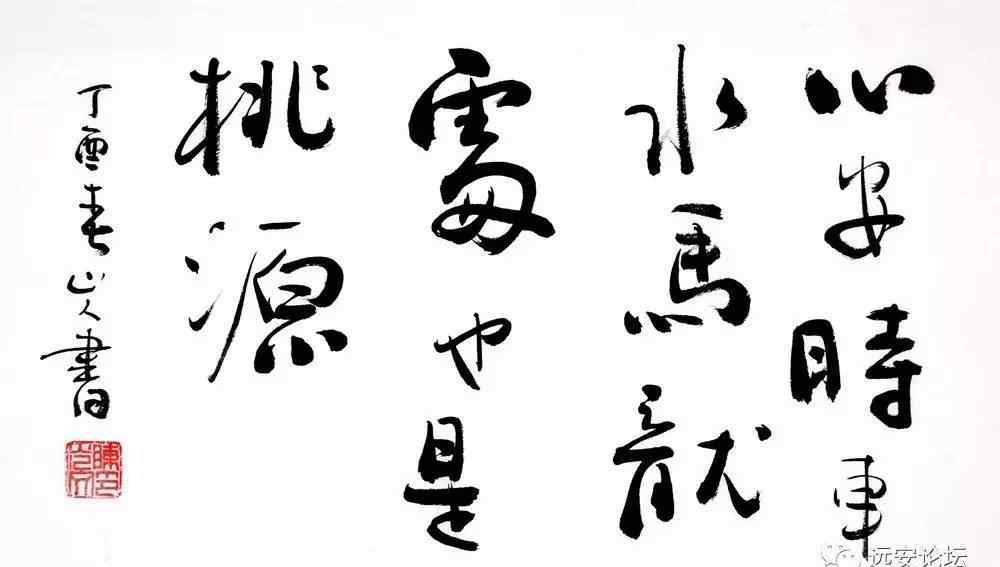 心安時車
水馬龍
處也是
桃源
丁酉春山人書
远安论坛